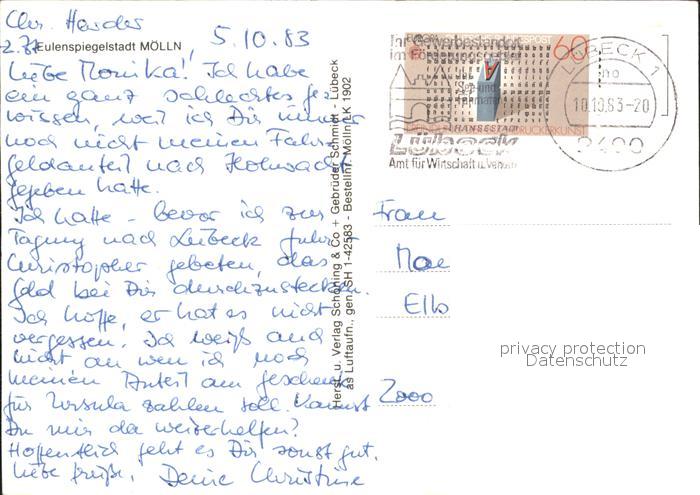 Chr. Harder
z.Zt Eulenspiegelstadt MÖLLN, 5.10.83
Liebe Monika! Ich habe
ein ganz schlechtes Ge-
wissen, weil ich Dir immer
noch nicht meinen Fahr-
geldanteil nach
gegeben hatte.
Ich hatte - bevor ich zur
Tagung nach Lübeck fuhr -
Christopher gebeten, das
Geld bei Dir durchzustecken.
Ich hoffe, er hat es nicht
vergessen. Ich weiß auch
nicht an wen ich noch
meinen Anteil am Geschenk
für Ursula zahlen soll. Kannst
Du mir da weiterhelfen?
Hoffentlich geht es Dir sonst gut.
Liebe Grüße, Deine Christine
Herst. u. Verlag Schöning & Co + Gebrüder Schmidt - Lübeck
as Luftaufn., gen. SH 1-42583 - Bestellnr. Mölln LK 1902
60
LÜBECK 1
10.10.83-20
2400
HANSESTADT
Lübeck
Amt für Wirtschaft u. Verkehr
Frau
Mon
Elb
2000
privacy protection
Datenschutz